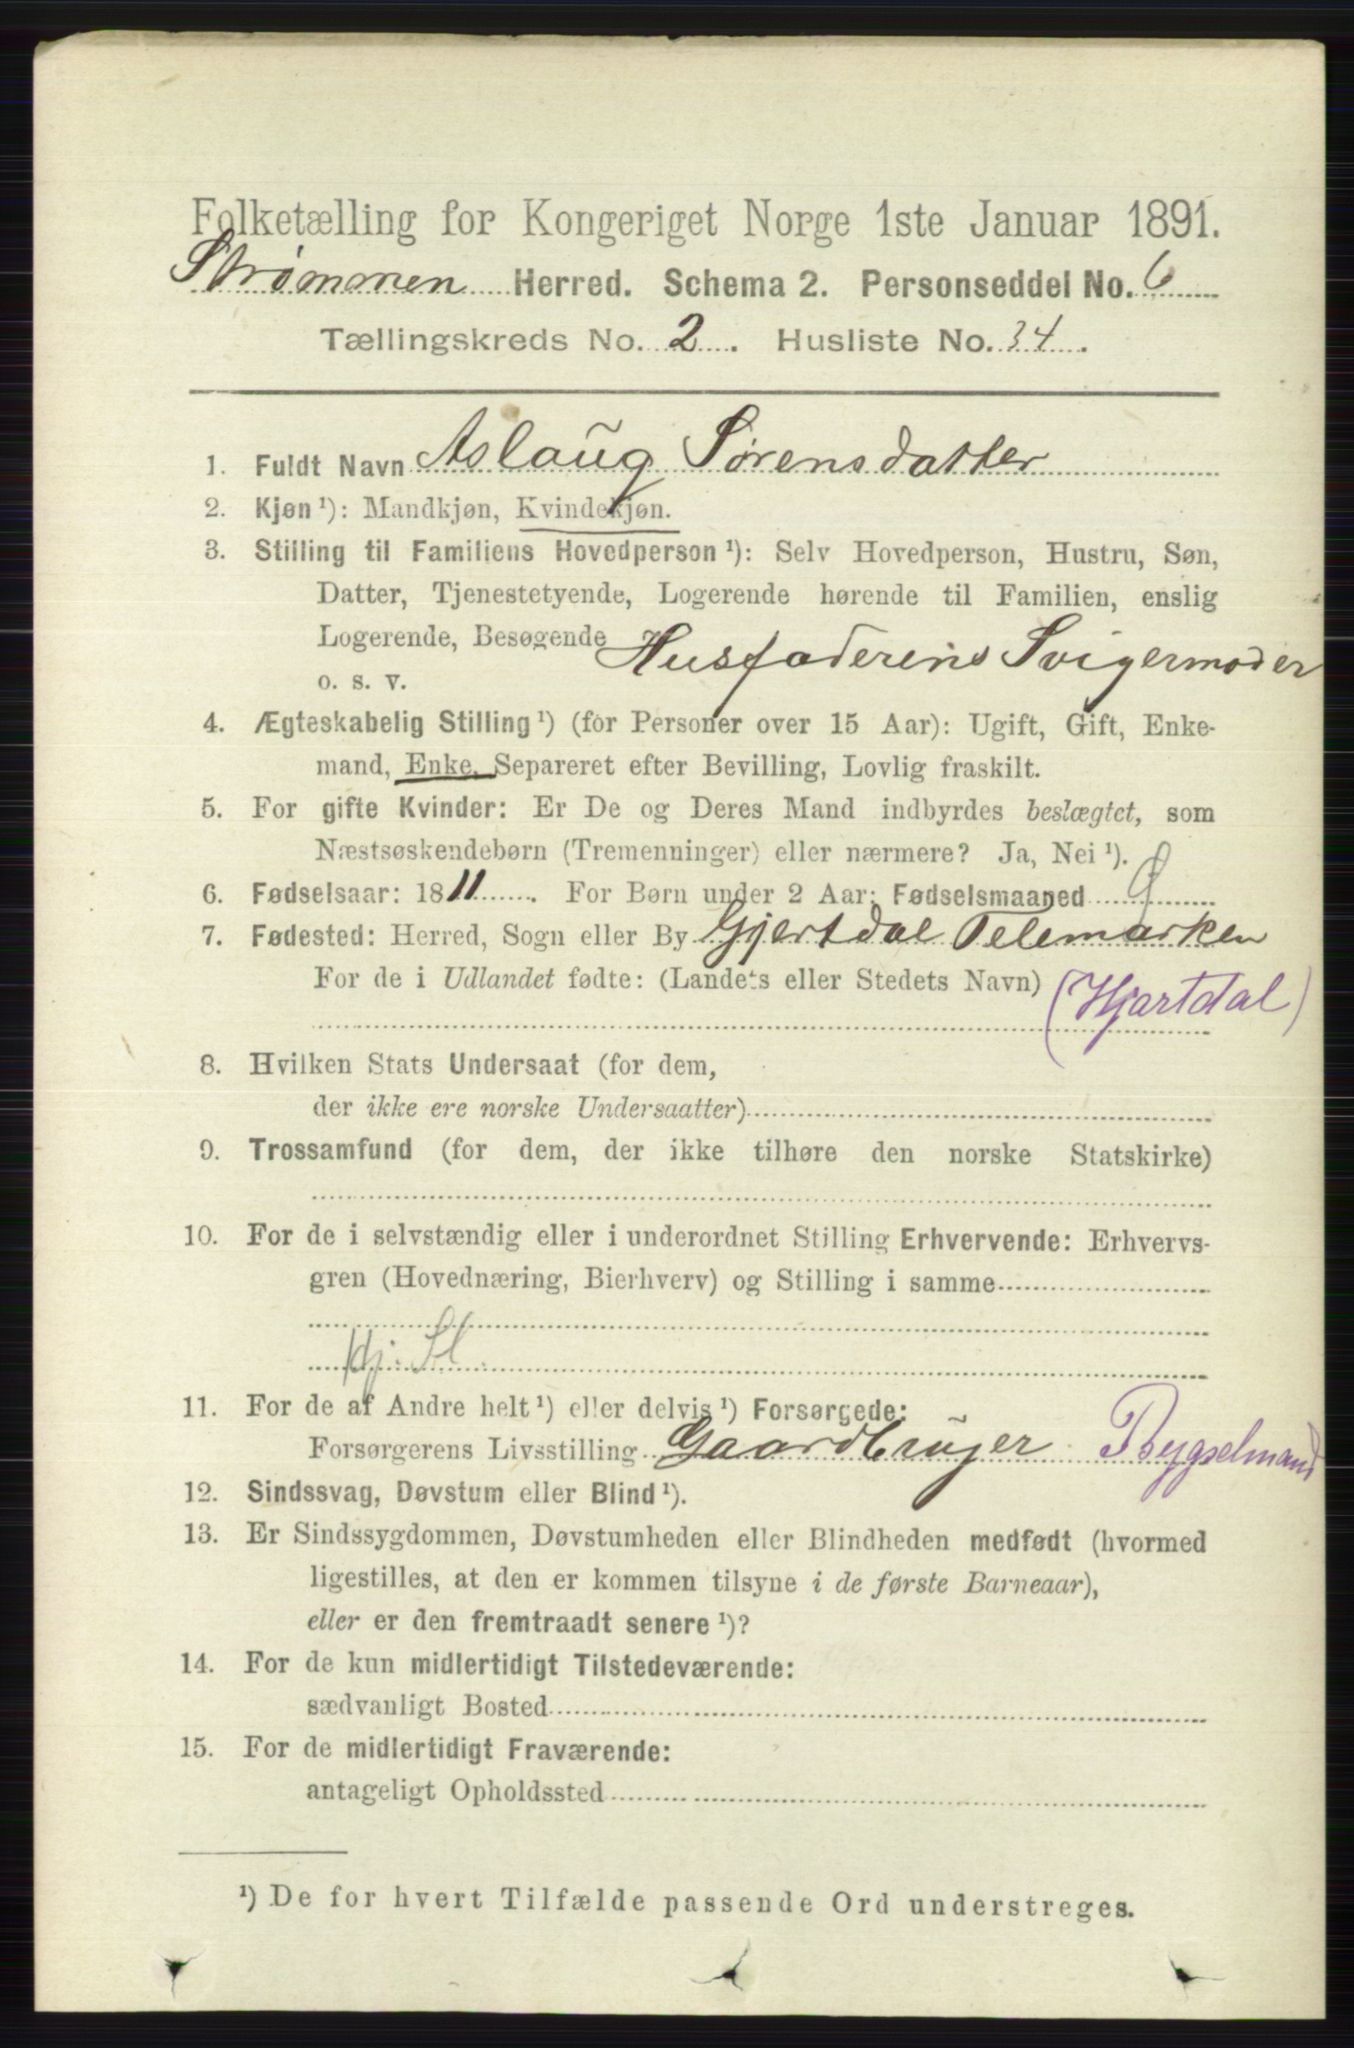 Folketælling for Kongeriget Norge 1ste Januar 1891.
Strømmen Herred. Schema 2. Personseddel No. 6
Tællingskreds No. 2. Husliste No. 34.
1. Fuldt Navn Aslaug Sørensdatter
2. Kjøn ¹): Mandkjøn, Kvindekjøn.
3. Stilling til Familiens Hovedperson ¹): Selv Hovedperson, Hustru, Søn,
Datter, Tjenestetyende, Logerende hørende til Familien, enslig
Logerende, Besøgende Husfaderens Svigermoder
o. s. v.
4. Ægteskabelig Stilling ¹) (for Personer over 15 Aar): Ugift, Gift, Enke-
mand, Enke, Separeret efter Bevilling, Lovlig fraskilt.
5. For gifte Kvinder: Er De og Deres Mand indbyrdes beslægtet, som
Næstsøskendebørn (Tremenninger) eller nærmere? Ja, Nei ¹).
6. Fødselsaar: 1811. For Børn under 2 Aar: Fødselsmaaned Ø
7. Fødested: Herred, Sogn eller By Gjertdal Telemarken
For de i Udlandet fødte: (Landets eller Stedets Navn) (Hjartdal)
8. Hvilken Stats Undersaat (for dem,
der ikke ere norske Undersaatter)
9. Trossamfund (for dem, der ikke tilhøre den norske Statskirke)
10. For de i selvstændig eller i underordnet Stilling Erhvervende: Erhvervs-
gren (Hovednæring, Bierhverv) og Stilling i samme
Hj. St.
11. For de af Andre helt ¹) eller delvis ¹) Forsørgede:
Forsørgerens Livsstilling Gaardbruger Bygselmand
12. Sindssvag, Døvstum eller Blind ¹).
13. Er Sindssygdommen, Døvstumheden eller Blindheden medfødt (hvormed
ligestilles, at den er kommen tilsyne i de første Barneaar),
eller er den fremtraadt senere ¹)?
14. For de kun midlertidigt Tilstedeværende:
sædvanligt Bosted
15. For de midlertidigt Fraværende:
antageligt Opholdssted
¹) De for hvert Tilfælde passende Ord understreges.